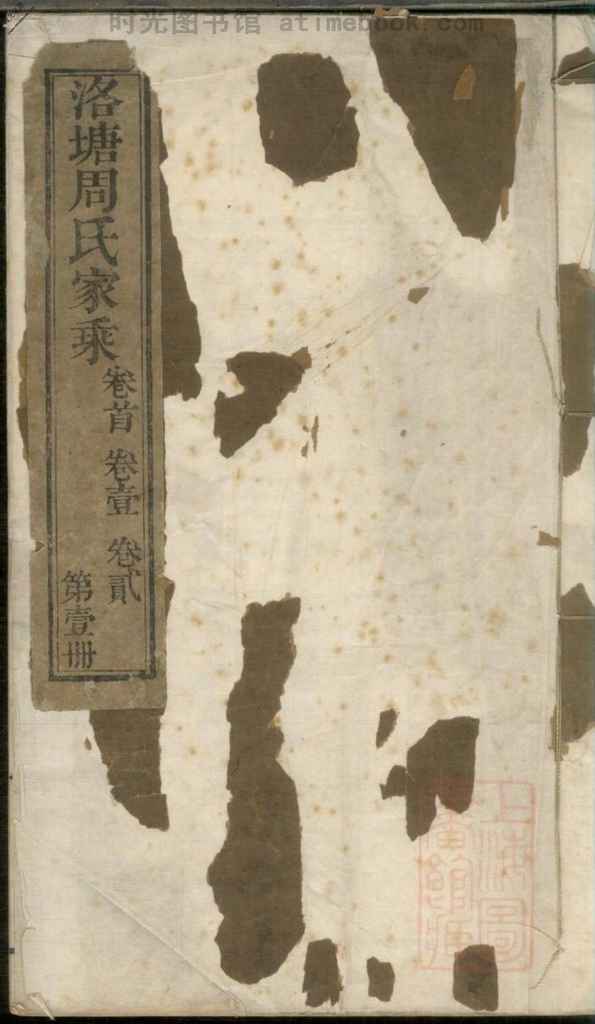 时光图书馆 atimebook.com
洛塘周氏家乘
卷首 卷壹 卷貳
第壹冊
上海圖書館藏